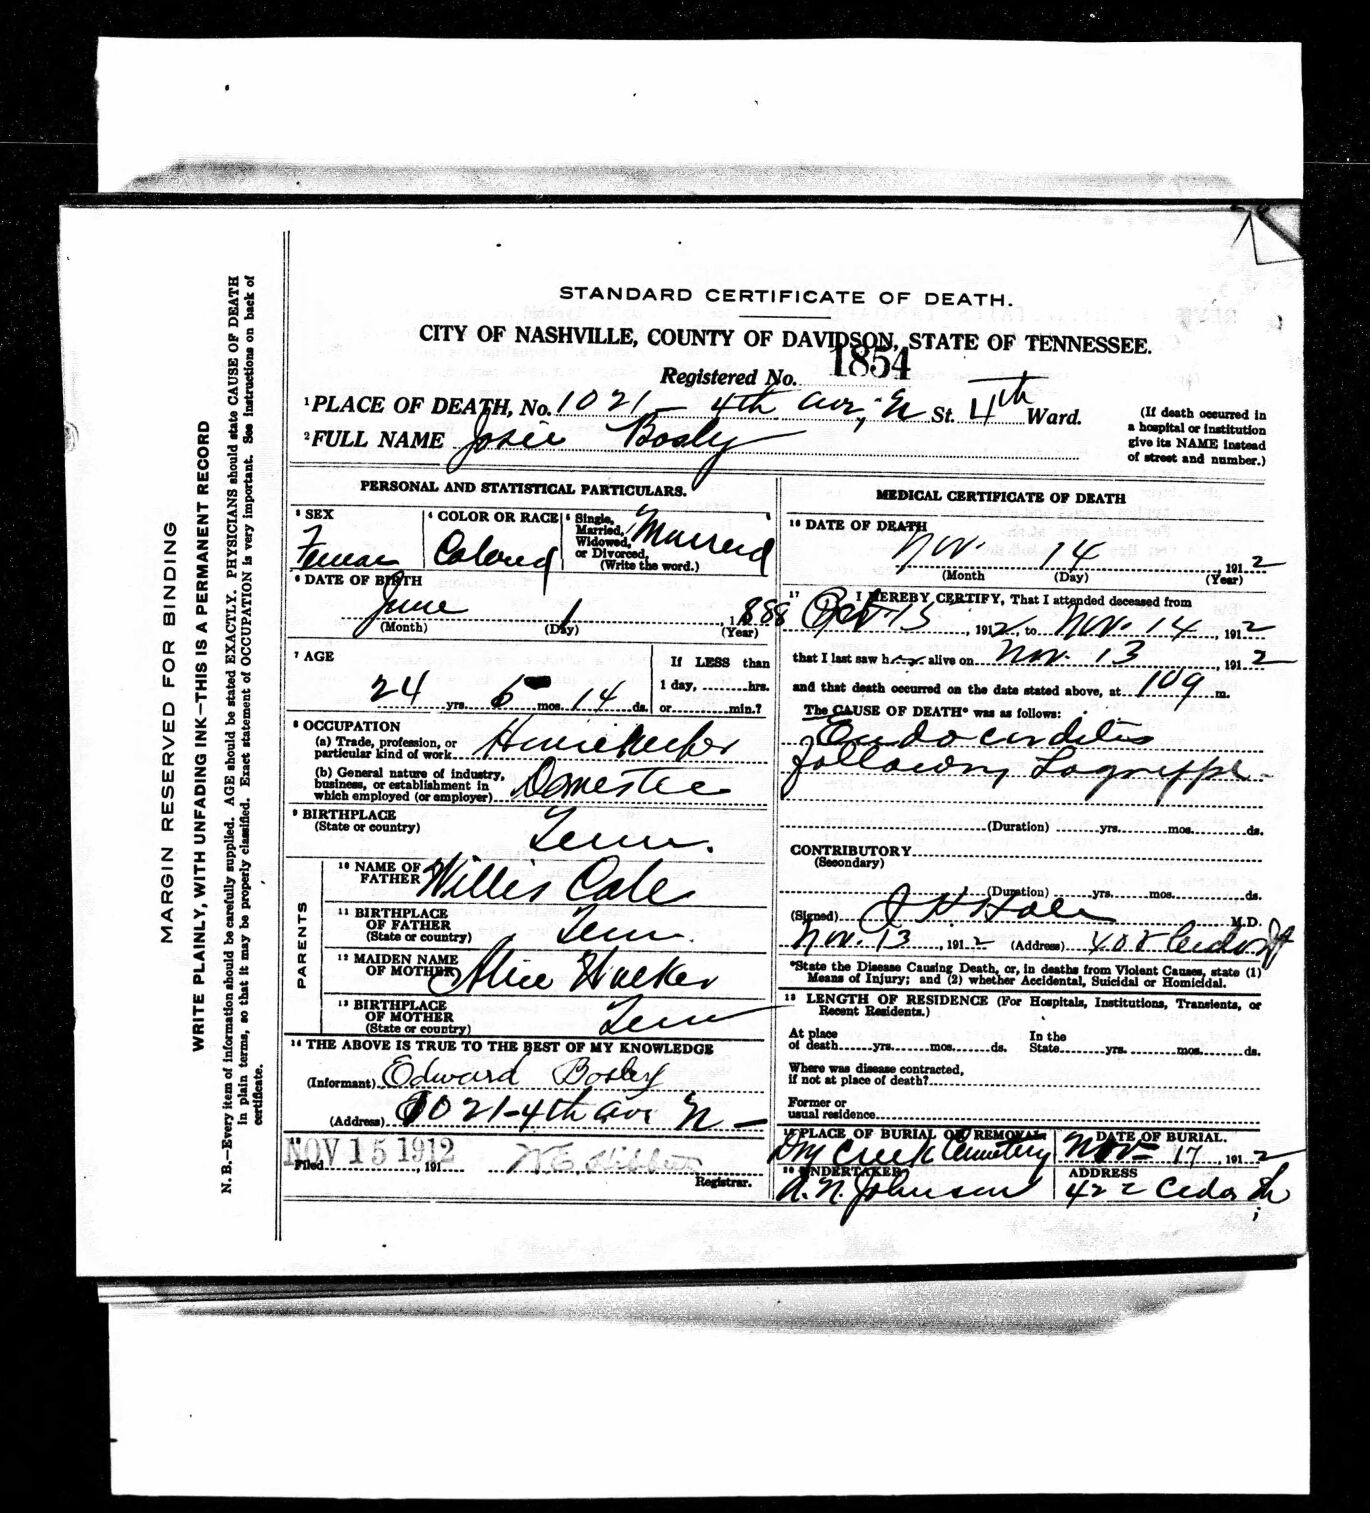 STANDARD CERTIFICATE OF DEATH.
CITY OF NASHVILLE, COUNTY OF DAVIDSON, STATE OF TENNESSEE.
Registered No. 1854
1 PLACE OF DEATH, No. 1021 - 4th Ave, N St. 4th Ward.
(If death occurred in a hospital or institution give its NAME instead of street and number.)
2 FULL NAME Josie Bosley
PERSONAL AND STATISTICAL PARTICULARS.
3 SEX
Female
4 COLOR OR RACE
Colored
5 Single, Married, Widowed, or Divorced. (Write the word.)
Married
6 DATE OF BIRTH
June 1, 1888
(Month) (Day) (Year)
7 AGE
24 yrs. 6 mos. 14 ds.
If LESS than
1 day, hrs.
or min.?
8 OCCUPATION
(a) Trade, profession, or
particular kind of work Housekeeper
(b) General nature of industry,
business, or establishment in
which employed (or employer) Domestic
9 BIRTHPLACE
(State or country) Tenn.
PARENTS
10 NAME OF
FATHER Willis Cale
11 BIRTHPLACE
OF FATHER
(State or country) Tenn.
12 MAIDEN NAME
OF MOTHER Alice
13 BIRTHPLACE
OF MOTHER
(State or country) Tenn
14 THE ABOVE IS TRUE TO THE BEST OF MY KNOWLEDGE
(Informant) Edward Bosley
(Address) 1021-4th ave N -
NOV 15 1912
Filed , 191
Registrar.
MEDICAL CERTIFICATE OF DEATH
16 DATE OF DEATH
Nov. 14, 1912
(Month (Day) (Year)
17 I HEREBY CERTIFY, That I attended deceased from
Oct-15, 1912, to Nov. 14, 1912
that I last saw her alive on Nov. 13, 1912
and that death occurred on the date stated above, at 109 m.
The CAUSE OF DEATH* was as follows:
Endocarditis
following Lagrippe.
(Duration) yrs. mos. ds.
CONTRIBUTORY
(Secondary)
(Duration) yrs. mos. ds.
(Signed) J H Hale M.D.
Nov. 13, 1912 (Address) 408 Cedar St
*State the Disease Causing Death, or, in deaths from Violent Causes, state (1)
Means of Injury; and (2) whether Accidental, Suicidal or Homicidal.
18 LENGTH OF RESIDENCE (For Hospitals, Institutions, Transients, or
Recent Residents.)
At place
of death yrs. mos. ds.
In the
State yrs. mos. ds.
Where was disease contracted,
if not at place of death?
Former or
usual residence
19 PLACE OF BURIAL OR REMOVAL
Dry Creek Cemetery
DATE OF BURIAL.
Nov- 17, 1912
20 UNDERTAKER
A. N. Johnson
ADDRESS
422 Cedar St
MARGIN RESERVED FOR BINDING
WRITE PLAINLY, WITH UNFADING INK—THIS IS A PERMANENT RECORD
N. B.—Every item of information should be carefully supplied. AGE should be stated EXACTLY. PHYSICIANS should state CAUSE OF DEATH
in plain terms, so that it may be properly classified. Exact statement of OCCUPATION is very important. See instructions on back of
certificate.